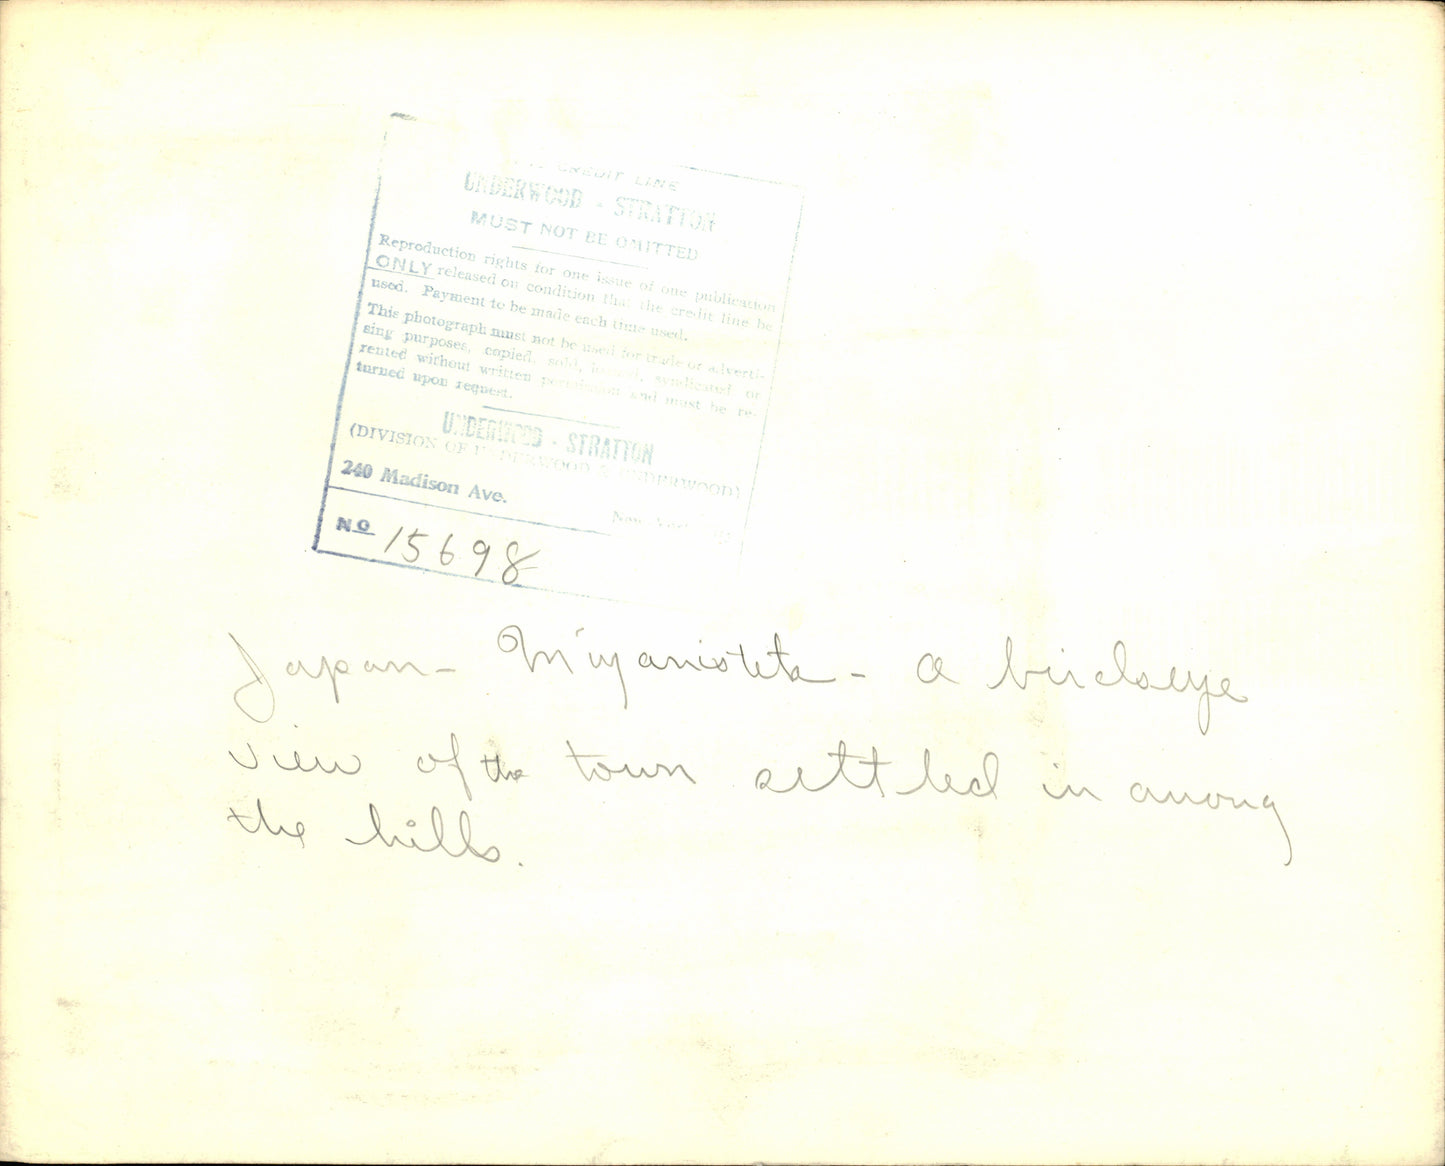 CREDIT LINE
UNDERWOOD - STRATTON
MUST NOT BE OMITTED
Reproduction rights for one issue of one publication
ONLY released on condition that the credit line be
used. Payment to be made each time used.
This photograph must not be used for trade or adverti-
sing purposes, copied, sold, loaned, syndicated or
rented without written permission and must be re-
turned upon request.
UNDERWOOD - STRATTON
(DIVISION OF UNDERWOOD & UNDERWOOD)
240 Madison Ave.
New York
No 15698
Japan - - a birdseye
view of the town settled in among
the hills.